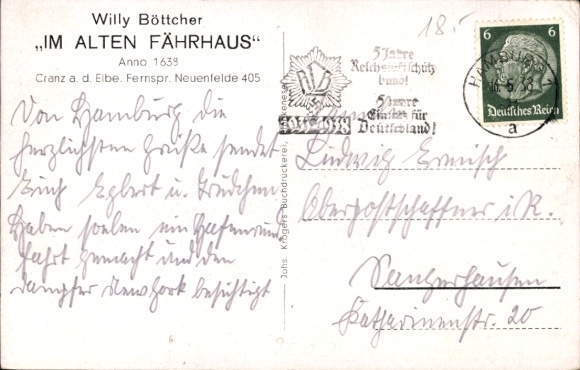 Willy Böttcher
„IM ALTEN FÄHRHAUS“
Anno 1638
Cranz a. d. Elbe. Fernspr. Neuenfelde 405
Von Hamburg die
herzlichsten Grüße sendet
Euch Egbert u. Trudchen
Haben soeben ein Hafenrund
fahrt gemacht und den
Dampfer Newyork besichtigt
Johs. Krögers Buchdruckerei,
18.-
RLB
5 Jahre
Reichsluftschutz
bund!
5 Jahre
für
Deutschland!
HAMBURG
5.38
a
6 6
Deutsches Reich
Ludwig
Oberpostschaffner i. R.
Sangerhausen
Katharinenstr. 20